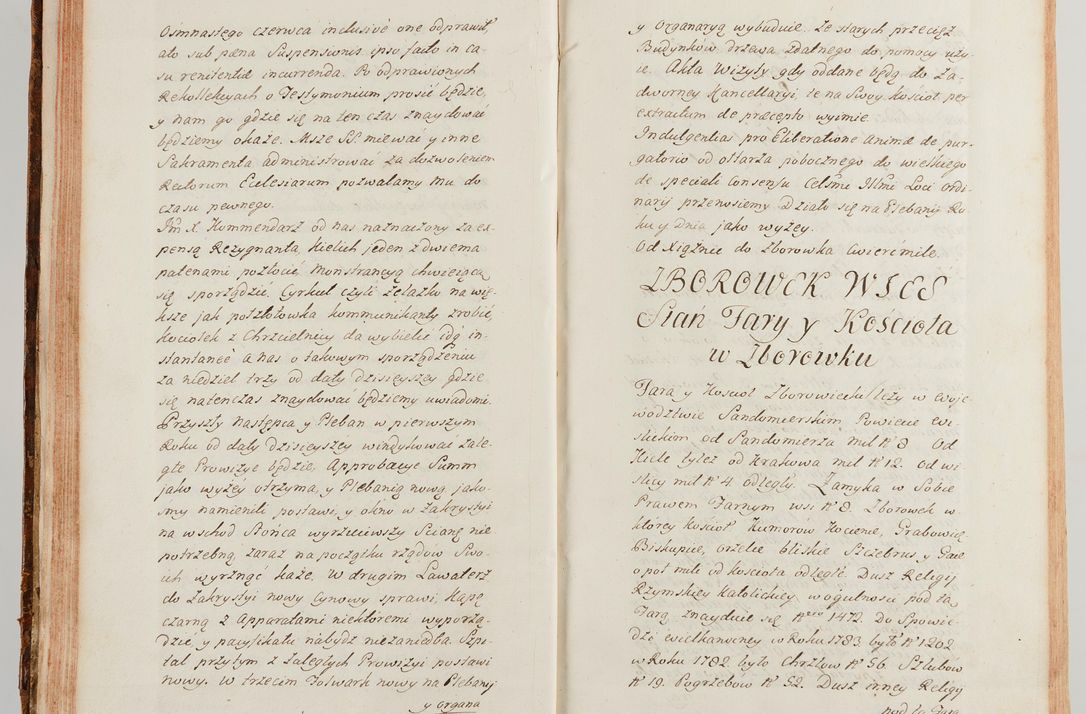 Osmnastego czerwca inclusivè one odprawił,
ato sub pæna Suspensionis ipso facto in ca-
su renitentiæ incurrenda. Po odprawionych
Rekollekcyach o Testymonium prosić będzie,
y nam go gdzie się na ten czas znaydować
będziemy okaże. Msze SS. miewać y inne
Sakramenta administrować za dozwoleniem
Rectorum Ecclesiarum pozwalamy Mu do
czasu pewnego.
Jm X. Kommendarz od nas naznaczony za ex-
pensą Rezygnanta, kielich jeden z dwiema
patenami pozłocić Monstrancyą chwieiącą
się sporządzić. Cyrkuł czyli żelazko na wię-
ksze jak potzłotowka kommunikanty zrobić,
kociołek z Chrzcielnicy da wybielić idq in-
stantaneè a nas o takowym sporządzeniu
za niedziel trzy od daty dzisieyszey gdzie
się natenczas znaydować będziemy uwiadomi.
Przyszły Następca y Pleban w pierwszym
Roku od daty dzisieyszey windykować zale-
głe Prowizye będzie, Approbacye Summ
jako wyżey otrzyma, y Plebanią nową jako-
śmy namienili postawi, y okno w Zakrystyi
na wschod Słońca wyrzuciwszy Scianę nie
potrzebną, zaraz na początku rządow Swo-
ich wyrznąć każe. W drugim Lawaterz
do Zakrystyi nowy Cynowy sprawi, Kapę
czarną z Apparatami niektoremi wyporzą-
dzi, y pacyfikału nabydź niezaniedba. Szpi-
tal przytym z Zaległych Prowizyi postawi
nowy. W trzecim Folwark nowy na Plebanij
y organa
y Organaryą wybuduie. Ze starych przeciąż
Budynków drzewa zdalnego do pomocy uży-
ie. Akta Wizyty gdy oddane będą do Za-
dworney Kancellaryi, te na Swoy Kościoł per
extractum de præcepto wyimie.
Indulgentias pro Eliberatione Animæ de pur-
gatorio od ołtarza pobocznego do wielkiego
de speciali Consensu Celsmi Illmi Loci Ordi-
narij przenosiemy. Działo się na Plebanij Ro-
ku y Dnia jako wyżey.
Od Xiążnic do Zborowka ćwierćmile.
ZBOROWEK WIES
Stan Fary y Kościoła
w Zborowku
Fara y Kościoł Zborowiecki leży w Woje-
wodztwie Sandomierskim Powiecie Wi-
ślickim od Sandomierza mil N 8 Od
Kielc tyleż od Krakowa mil N 12. Od Wi-
slicy mil N 4 odległy. Zamyka w Sobie
Prawem Farnym wsi N 8. Zborowek w
ktorey Kościoł Kumorow Kocienie, Grabowię
Biskupice, orzelec bliskie Szczebrus, y Gace
o poł mili od kościoła odległe. Dusz Religij
Rzymskiey Katolickiey w ogulnosci pod tą
Farą znayduie się Nero 1472. Do Spowie-
dzi wielkanocney w Roku 1783 było N 1202
w Roku 1782 było Chrztow N 56. Szlubow
N 19. Pogrzebow N 52. Dusz inney Religij
pod tą Farą